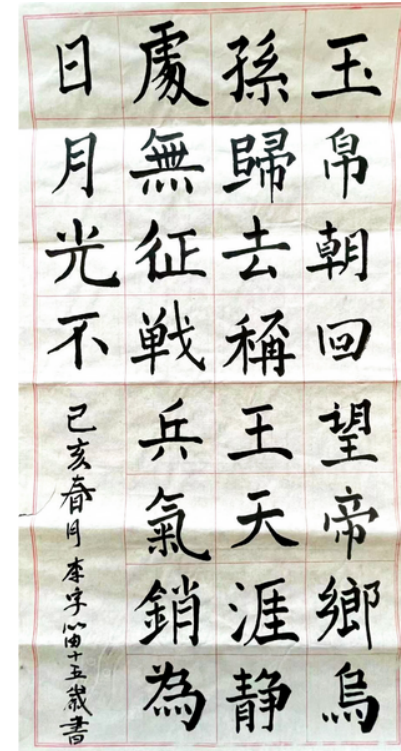 玉帛朝回望帝鄉烏
孫歸去稱王天涯静
處無征戰兵氣銷為
日月光不
己亥春月李字油十五歲書